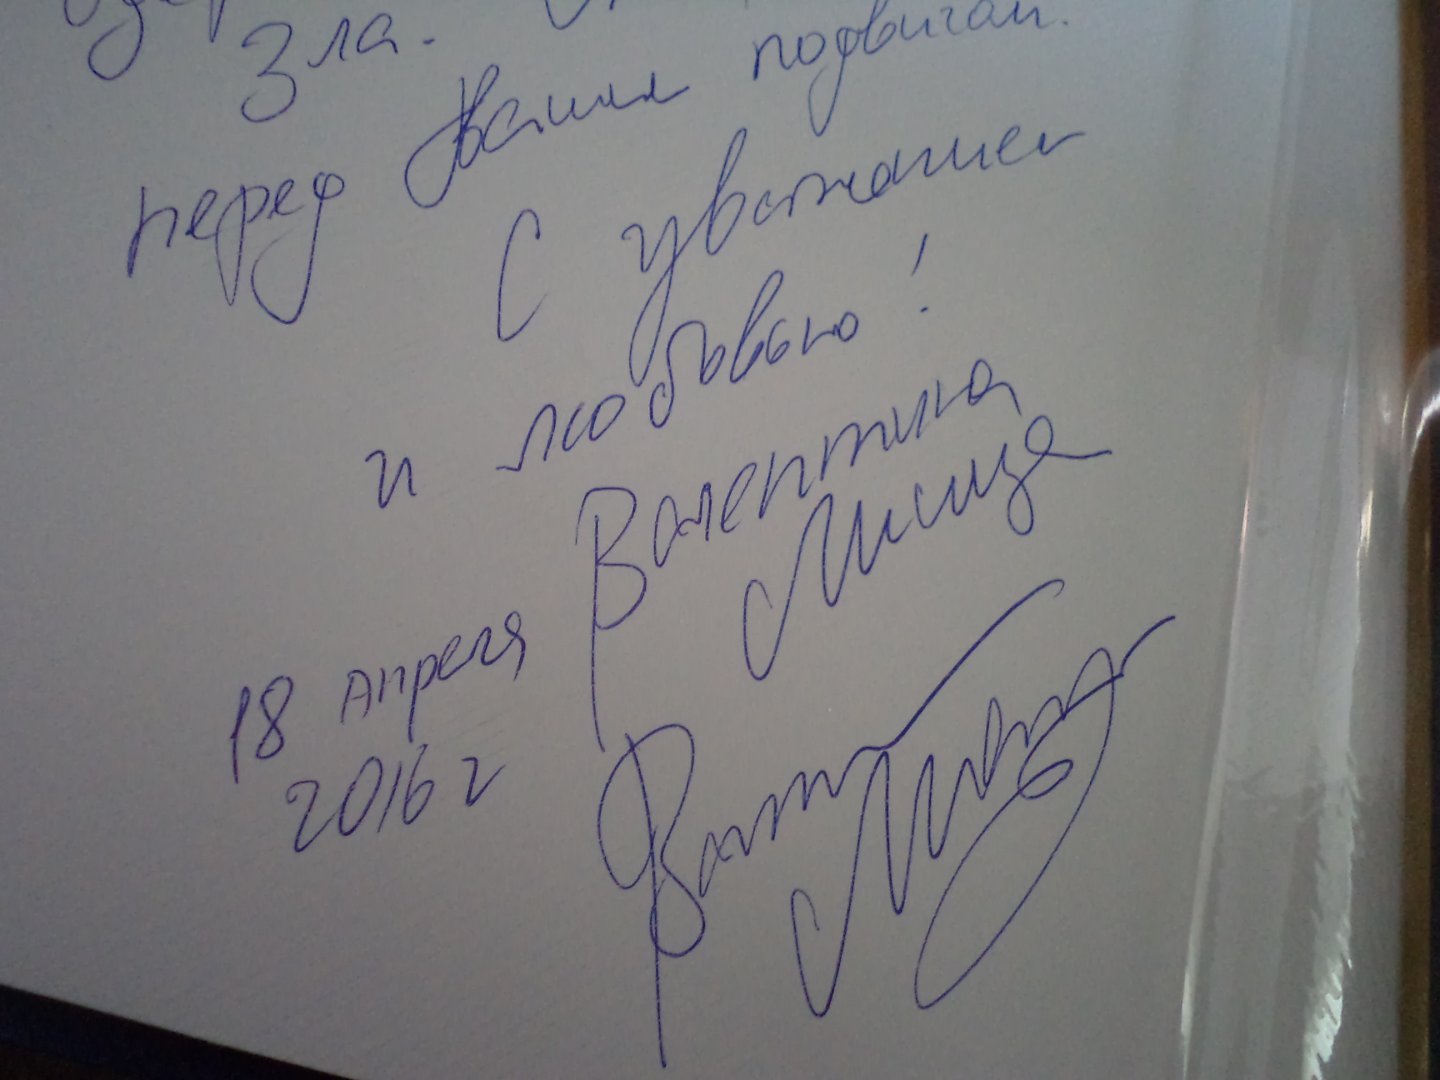 Зла.
перед Вашим подвигом.
С уважением
и любовью!
Валентина
Лисица
18 апреля
2016 г